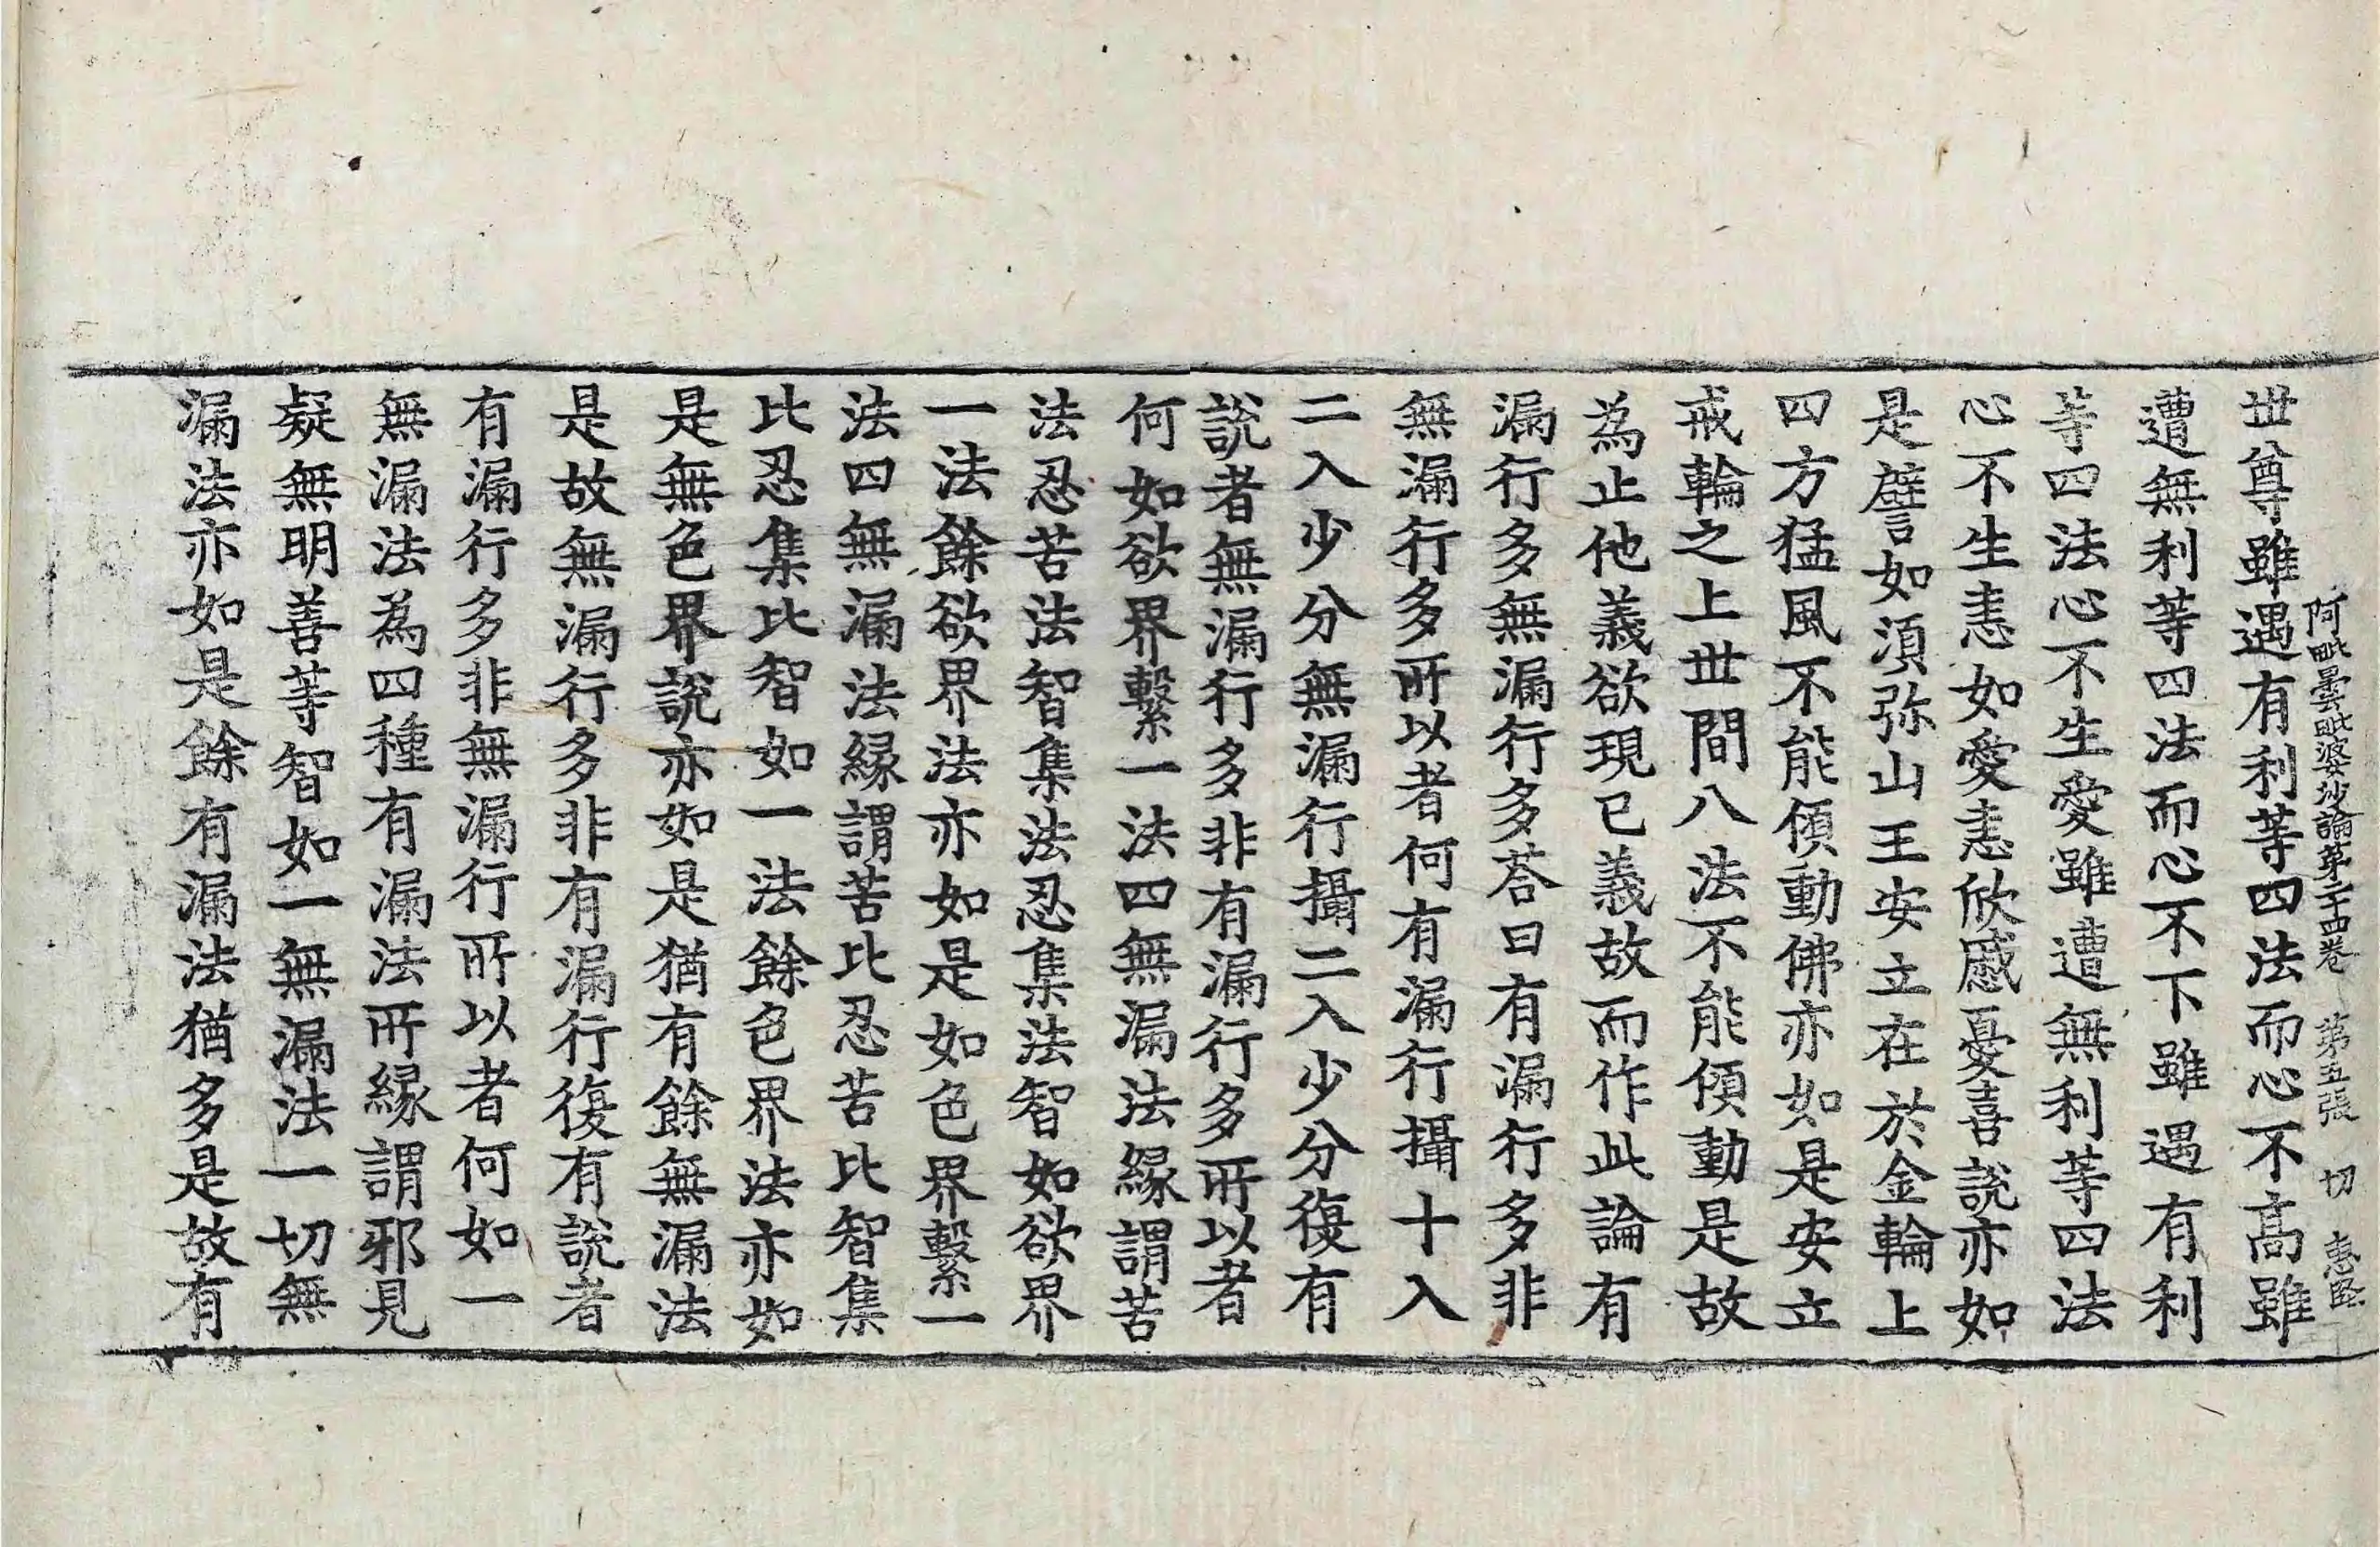 阿毗曇毗婆沙論第二十四卷 第五張 切
世尊雖遇有利等四法而心不高雖
遭無利等四法而心不下雖遇有利
等四法心不生愛雖遭無利等四法
心不生恚如愛恚欣慼憂喜說亦如
是譬如湏弥山王安立在於金輪上
四方猛風不能傾動佛亦如是安立
戒輪之上世間八法不能傾動是故
為止他義欲現已義故而作此論有
漏行多無漏行多荅曰有漏行多非
無漏行多所以者何有漏行攝十入
二入少分無漏行攝二入少分復有
說者無漏行多非有漏行多所以者
何如欲界繫一法四無漏法緣謂苦
法忍苦法智集法忍集法智如欲界
一法餘欲界法亦如是如色界繫一
法四無漏法緣謂苦比忍苦比智集
比忍集比智如一法餘色界法亦如
是無色界說亦如是猶有餘無漏法
是故無漏行多非有漏行復有說者
有漏行多非無漏行所以者何如一
無漏法為四種有漏法所緣謂邪見
疑無明善等智如一無漏法一切無
漏法亦如是餘有漏法猶多是故有